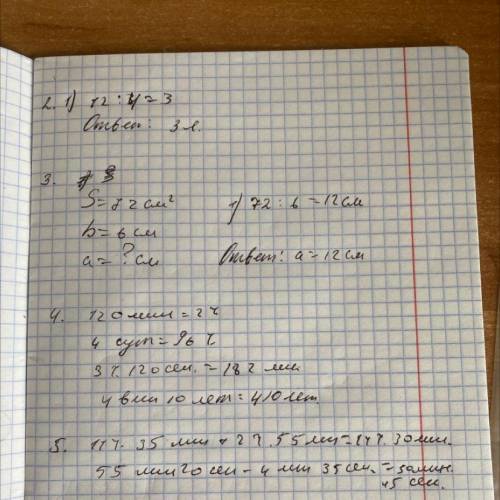 2. 1) 12 : 4 = 3
Ответ: 3 л.
3.
S = 72 см² 1) 72 : 6 = 12 см
b = 6 см
a = ? см Ответ: a = 12 см
4. 120 мин = 2 ч
4 сут = 96 ч
3 ч. 120 сек. = 182 мин.
4 века 10 лет = 410 лет.
5. 11 ч. 35 мин + 2 ч. 55 мин = 14 ч. 30 мин.
55 мин 20 сек - 4 мин 35 сек. = 50 мин.
45 сек.